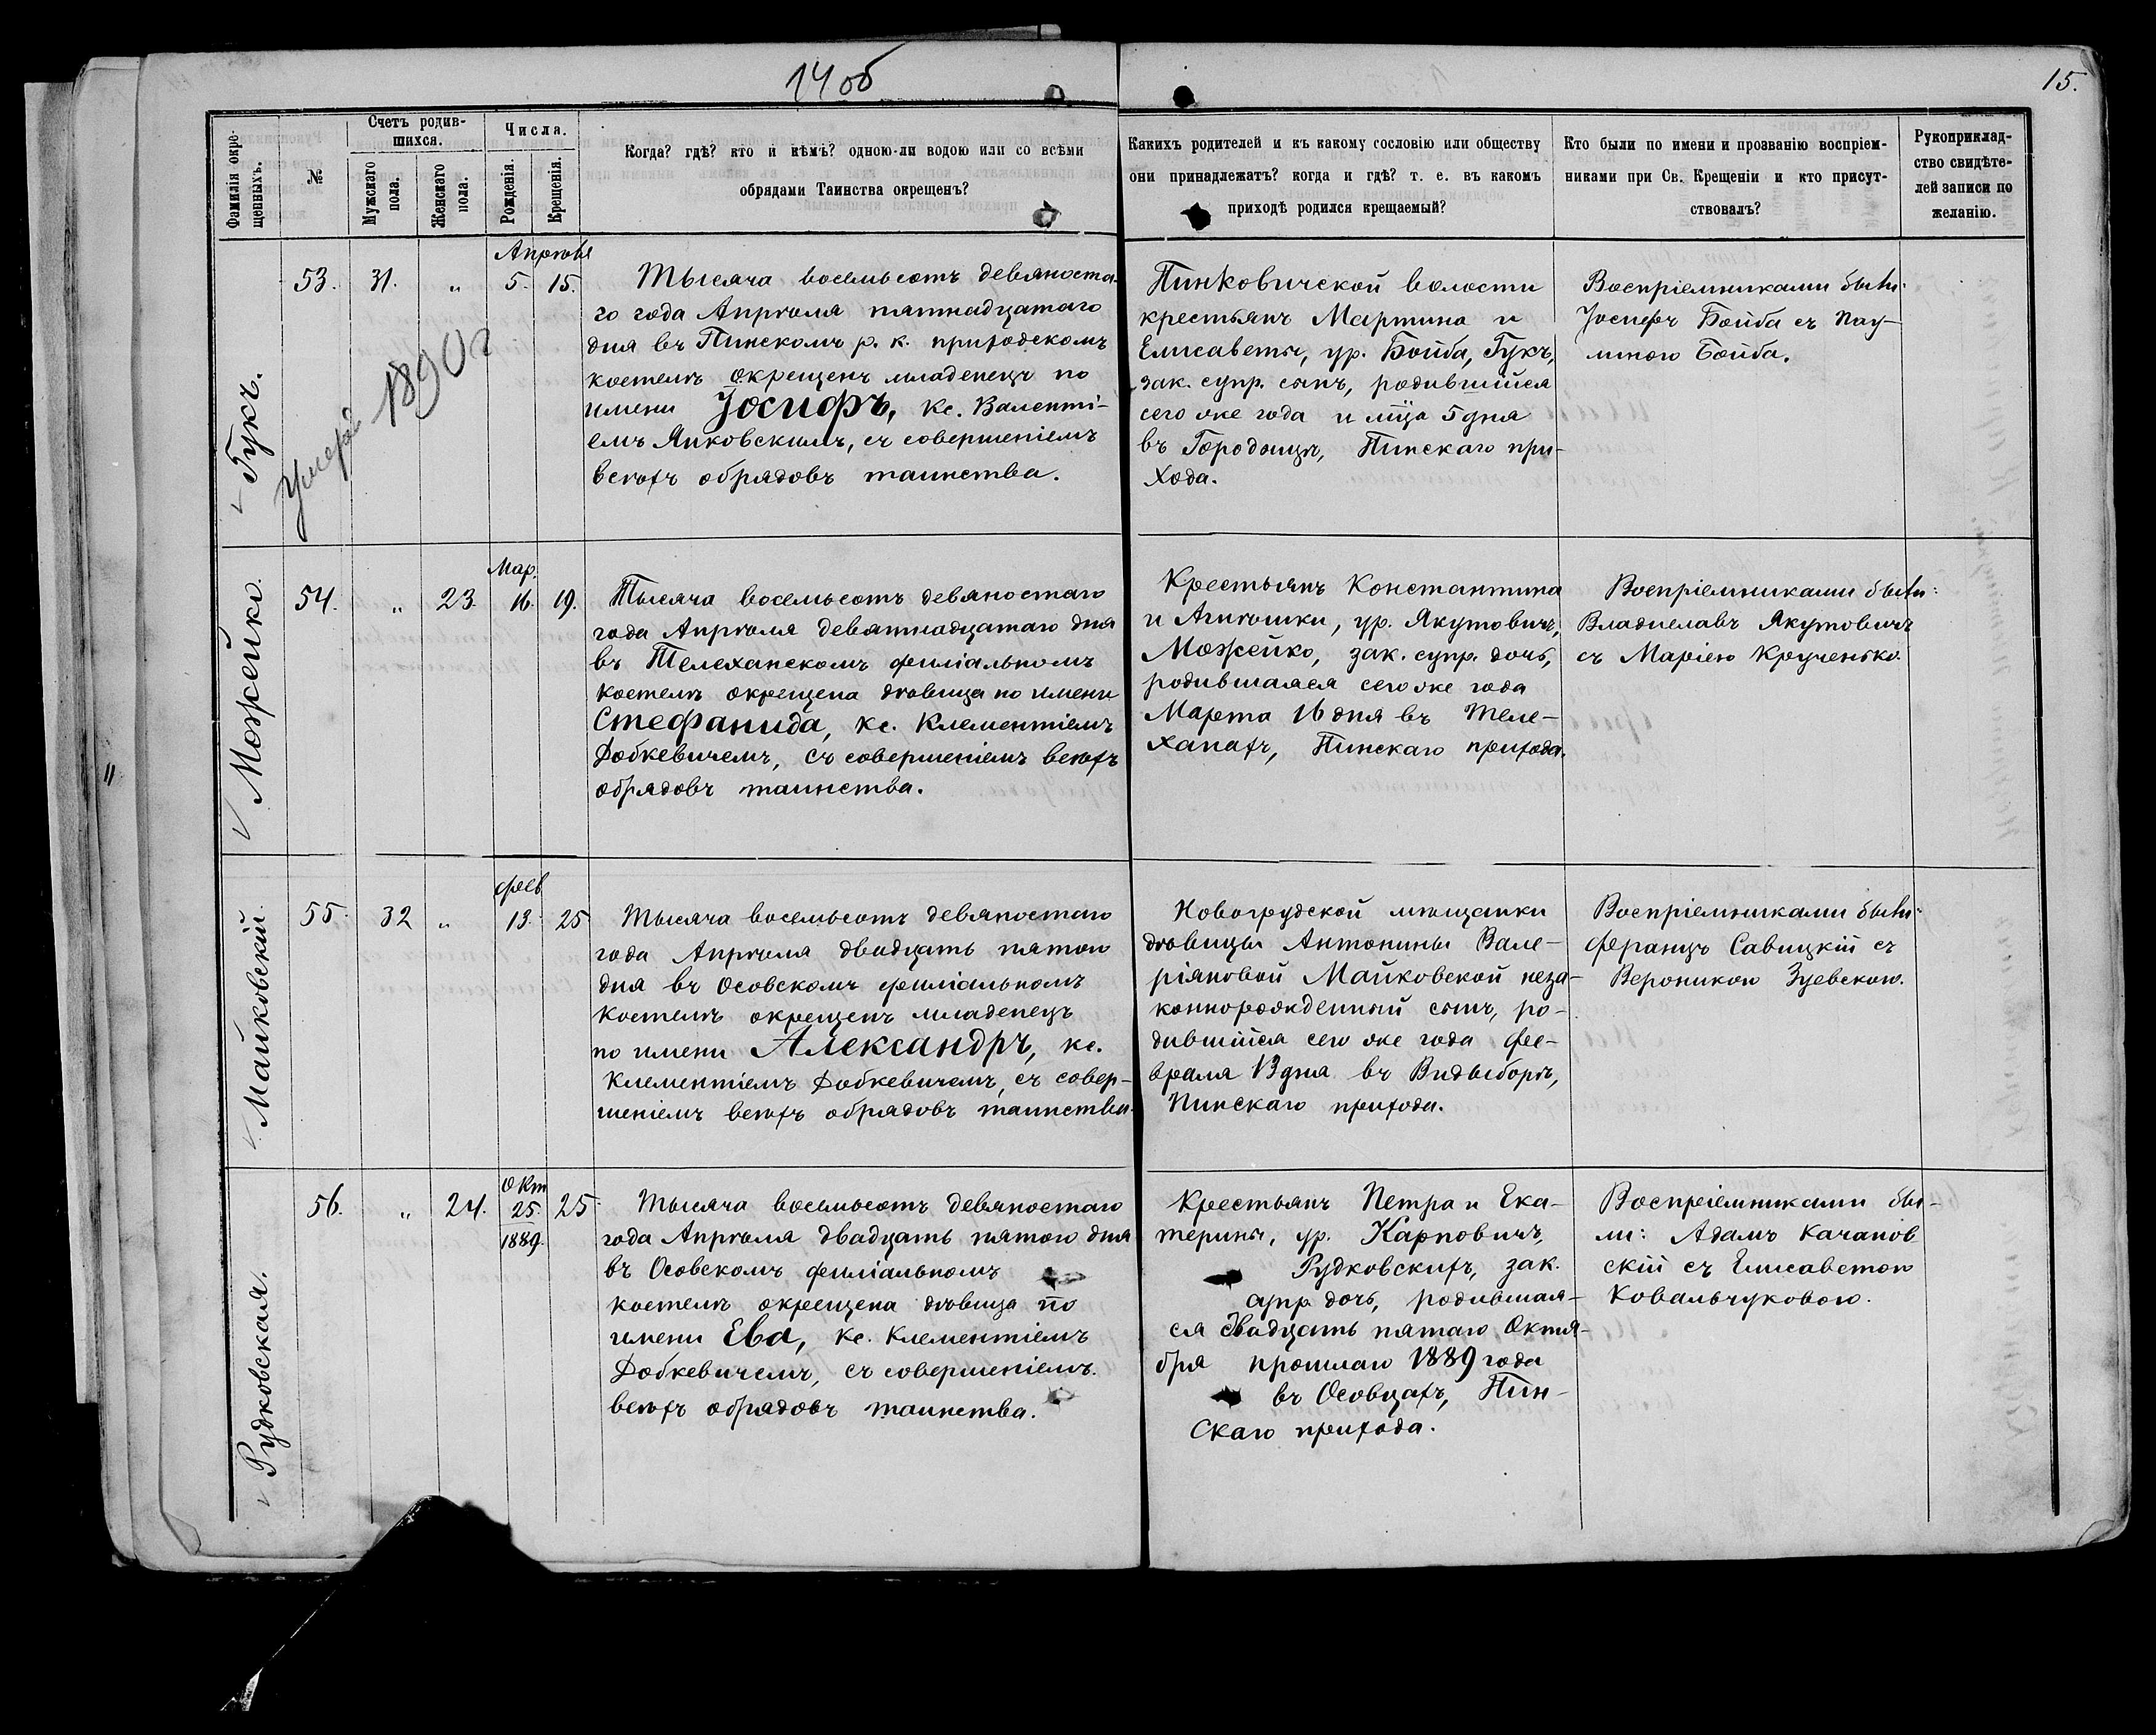 14 об
15.
Фамилія окре-
щенныхъ.
№
Счетъ родив-
шихся.
Мужскаго
пола.
Женскаго
пола.
Числа.
Рожденія.
Крещенія.
Когда? гдѣ? кто и кѣмъ? одною-ли водою или со всѣми
обрядами Таинства окрещенъ?
Какихъ родителей и къ какому сословію или обществу
они принадлежатъ? когда и гдѣ? т. е. въ какомъ
приходѣ родился крещаемый?
Кто были по имени и прозванію воспріем-
никами при Св. Крещеніи и кто присут-
ствовалъ?
Рукоприклад-
ство свидѣте-
лей записи по
желанію.
Гукъ.
Умеръ 1890 г
53. 31. " Апрѣля 5. 15.
Тысяча восемьсотъ девяноста-
го года Апрѣля пятнадцатаго
дня въ Пинскомъ р. к. приходскомъ
костелѣ окрещенъ младенецъ по
имени Іосифъ, кс. Валенті-
емъ Янковскимъ, съ совершеніемъ
всѣхъ обрядовъ таинства.
Пинковичской волости
крестьянъ Мартина и
Елисаветы, ур. Бойба, Гукъ,
зак. супр. сынъ, родившійся
сего же года и мца 5 дня
въ Городищѣ, Пинскаго при-
хода.
Воспріемниками были:
Іосифъ Бойба съ Пау-
линою Бойба.
Можейко.
54. " 23. Мар. 16. 19.
Тысяча восемьсотъ девяностаго
года Апрѣля девятнадцатаго дня
въ Телеханскомъ филіальномъ
костелѣ окрещена дѣвица по имени
Стефанида, кс. Клементіемъ
Добкевичемъ, съ совершеніемъ всѣхъ
обрядовъ таинства.
Крестьянъ Константина
и Агнѣшки, ур. Якутовичъ,
Можейко, зак. супр. дочь,
родившаяся сего же года
Марта 16 дня въ Теле-
ханахъ, Пинскаго прихода.
Воспріемниками были:
Владиславъ Якутовичъ
съ Маріею Крученько.
Майковскій.
55. 32 " фев 13. 25
Тысяча восемьсотъ девяностаго
года Апрѣля двадцать пятого
дня въ Осовскомъ филіальномъ
костелѣ окрещенъ младенецъ
по имени Александръ, кс.
Клементіемъ Добкевичемъ, съ совер-
шеніемъ всѣхъ обрядовъ таинства.
Новогрудской мѣщанки
дѣвицы Антонины Вале-
ріановой Майковской неза-
коннорожденный сынъ, ро-
дившійся сего же года Фев-
враля 13 дня въ Видыборѣ,
Пинскаго прихода.
Воспріемниками были:
Францъ Савицкій съ
Вероникою Зуевскою.
Рудковская.
56. " 24. окт 25. 1889. 25
Тысяча восемьсотъ девяностаго
года Апрѣля двадцать пятого дня
въ Осовскомъ филіальномъ
костелѣ окрещена дѣвица по
имени Ева, кс. Клементіемъ
Добкевичемъ, съ совершеніемъ
всѣхъ обрядовъ таинства.
Крестьянъ Петра и Ека-
терины, ур. Карповичъ,
Рудковскихъ, зак.
супр. дочь, родившая-
ся двадцать пятаго Октя-
бря прошлаго 1889 года
въ Осовцахъ, Пин-
скаго прихода.
Воспреіемниками бы-
ли: Адамъ Качанов
скій съ Елисаветою
Ковальчуковою.